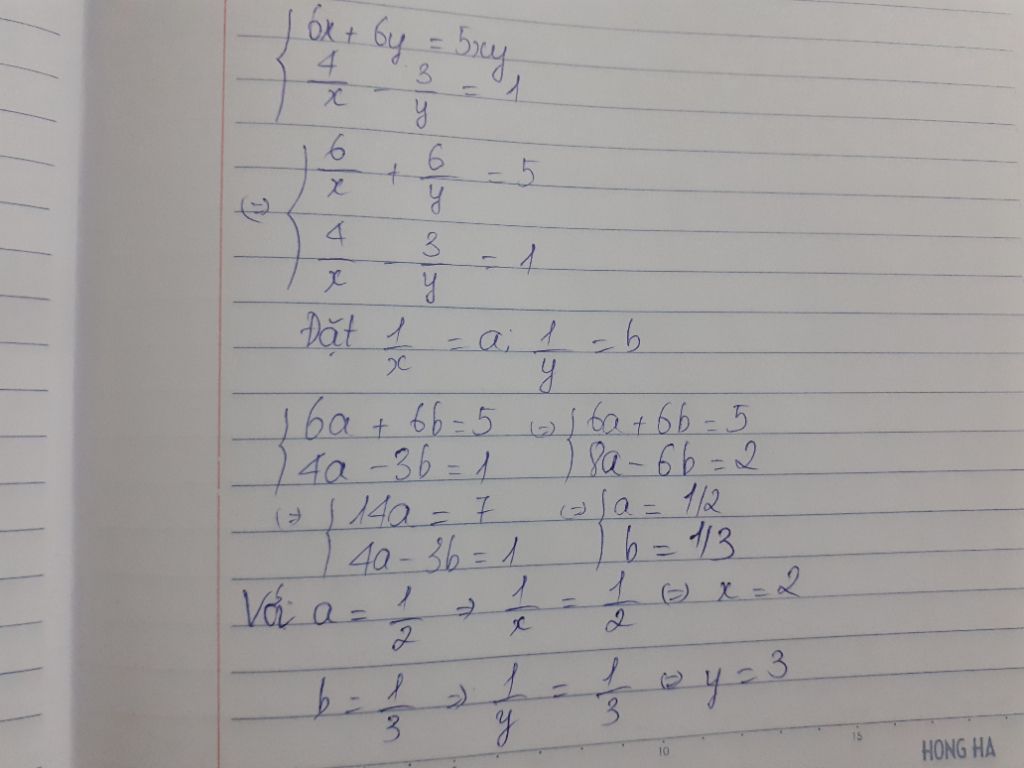 6x + 6y = 5xy
4/x - 3/y = 1
⇔ 6/x + 6/y = 5
4/x - 3/y = 1
Đặt 1/x = a; 1/y = b
{6a + 6b = 5 ⇔ {6a + 6b = 5
4a - 3b = 1 8a - 6b = 2
⇔ {14a = 7 ⇔ {a = 1/2
4a - 3b = 1 b = 1/3
Với a = 1/2 ⇒ 1/x = 1/2 ⇔ x = 2
b = 1/3 ⇒ 1/y = 1/3 ⇔ y = 3
10 15
HONG HA